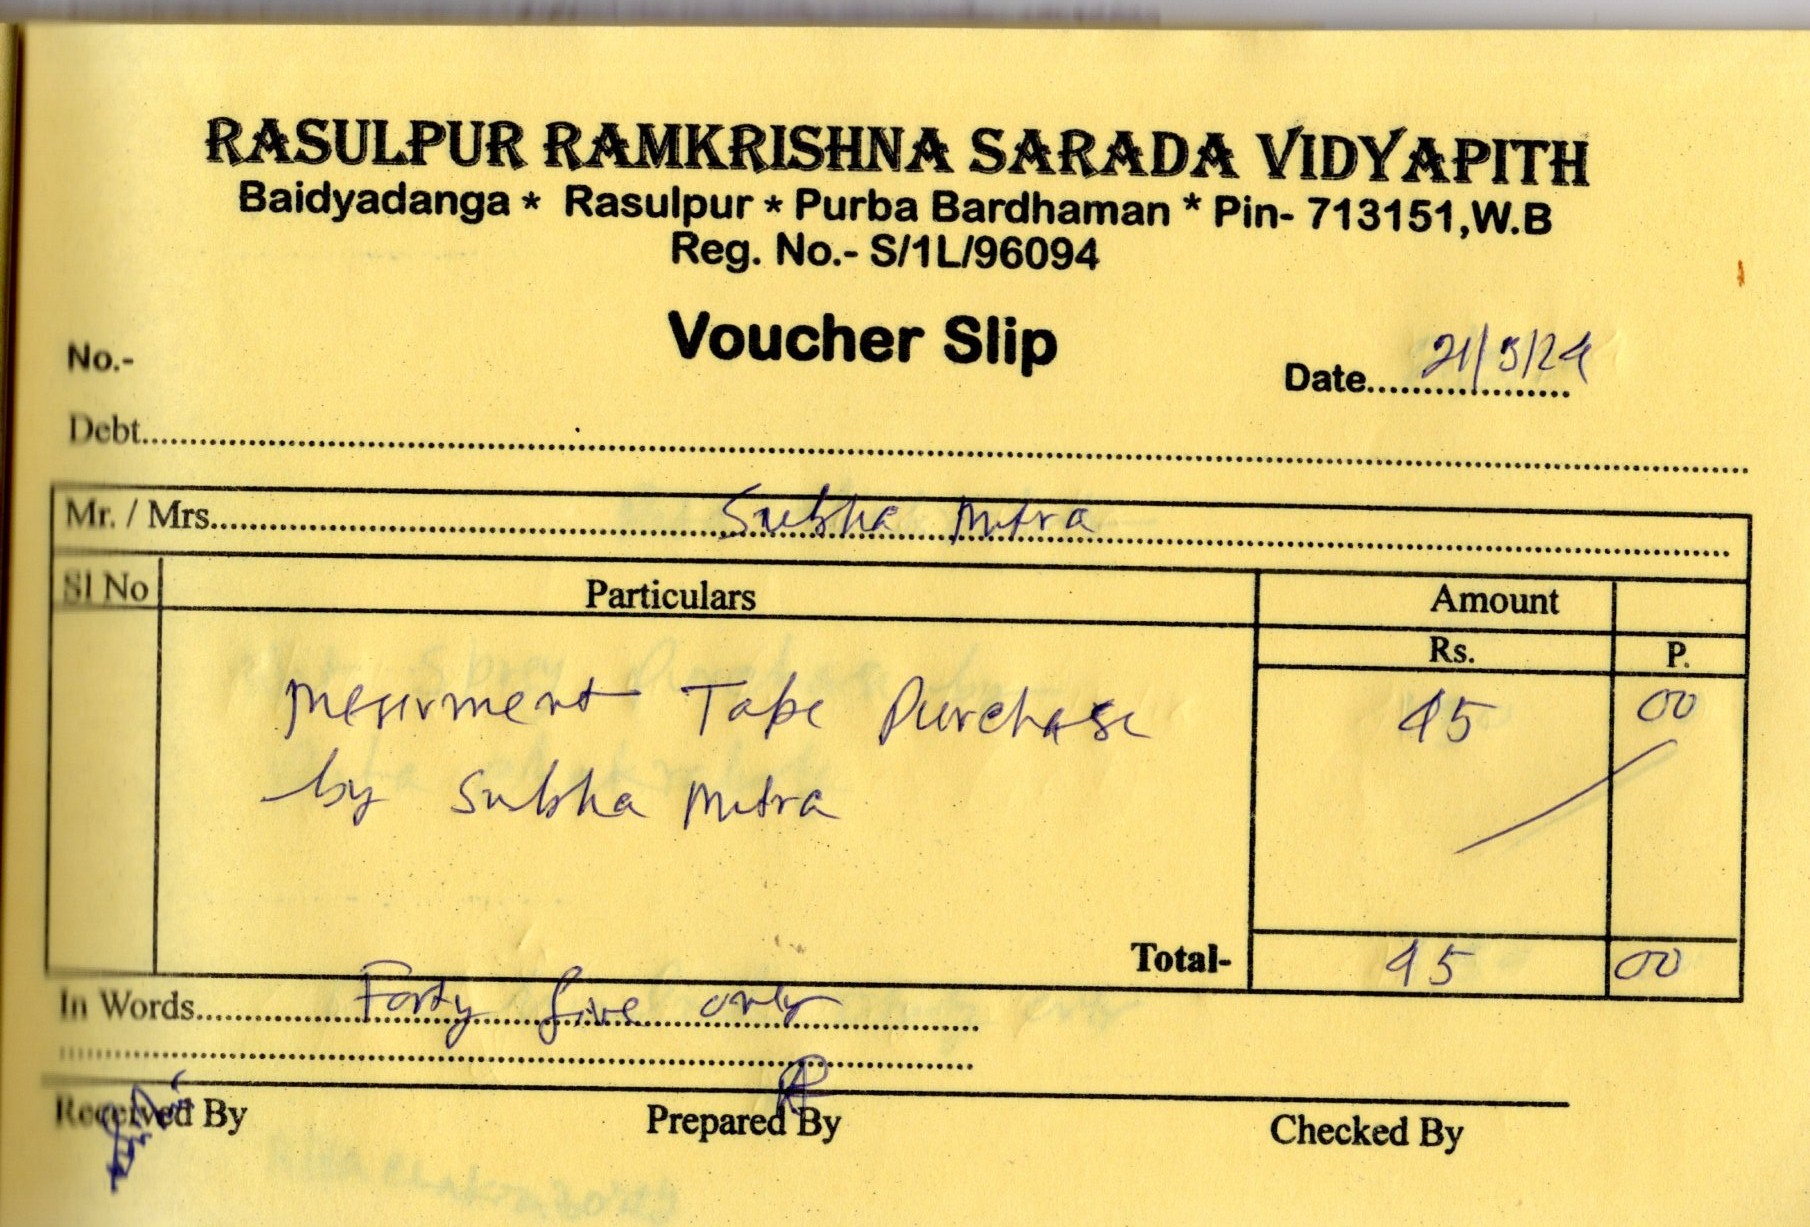 RASULPUR RAMKRISHNA SARADA VIDYAPITH
Baidyadanga * Rasulpur * Purba Bardhaman * Pin- 713151,W.B
Reg. No.- S/1L/96094
Voucher Slip
No.-
Date.................. 21/3/24
Debt..........
Mr. / Mrs.......... Subha Mitra
Sl No Particulars Amount
Rs. P.
Mesurment Tape Purchase 45 00
by Subha Mitra
Total- 45 00
In Words.......... Forty five only
Received By Prepared By Checked By